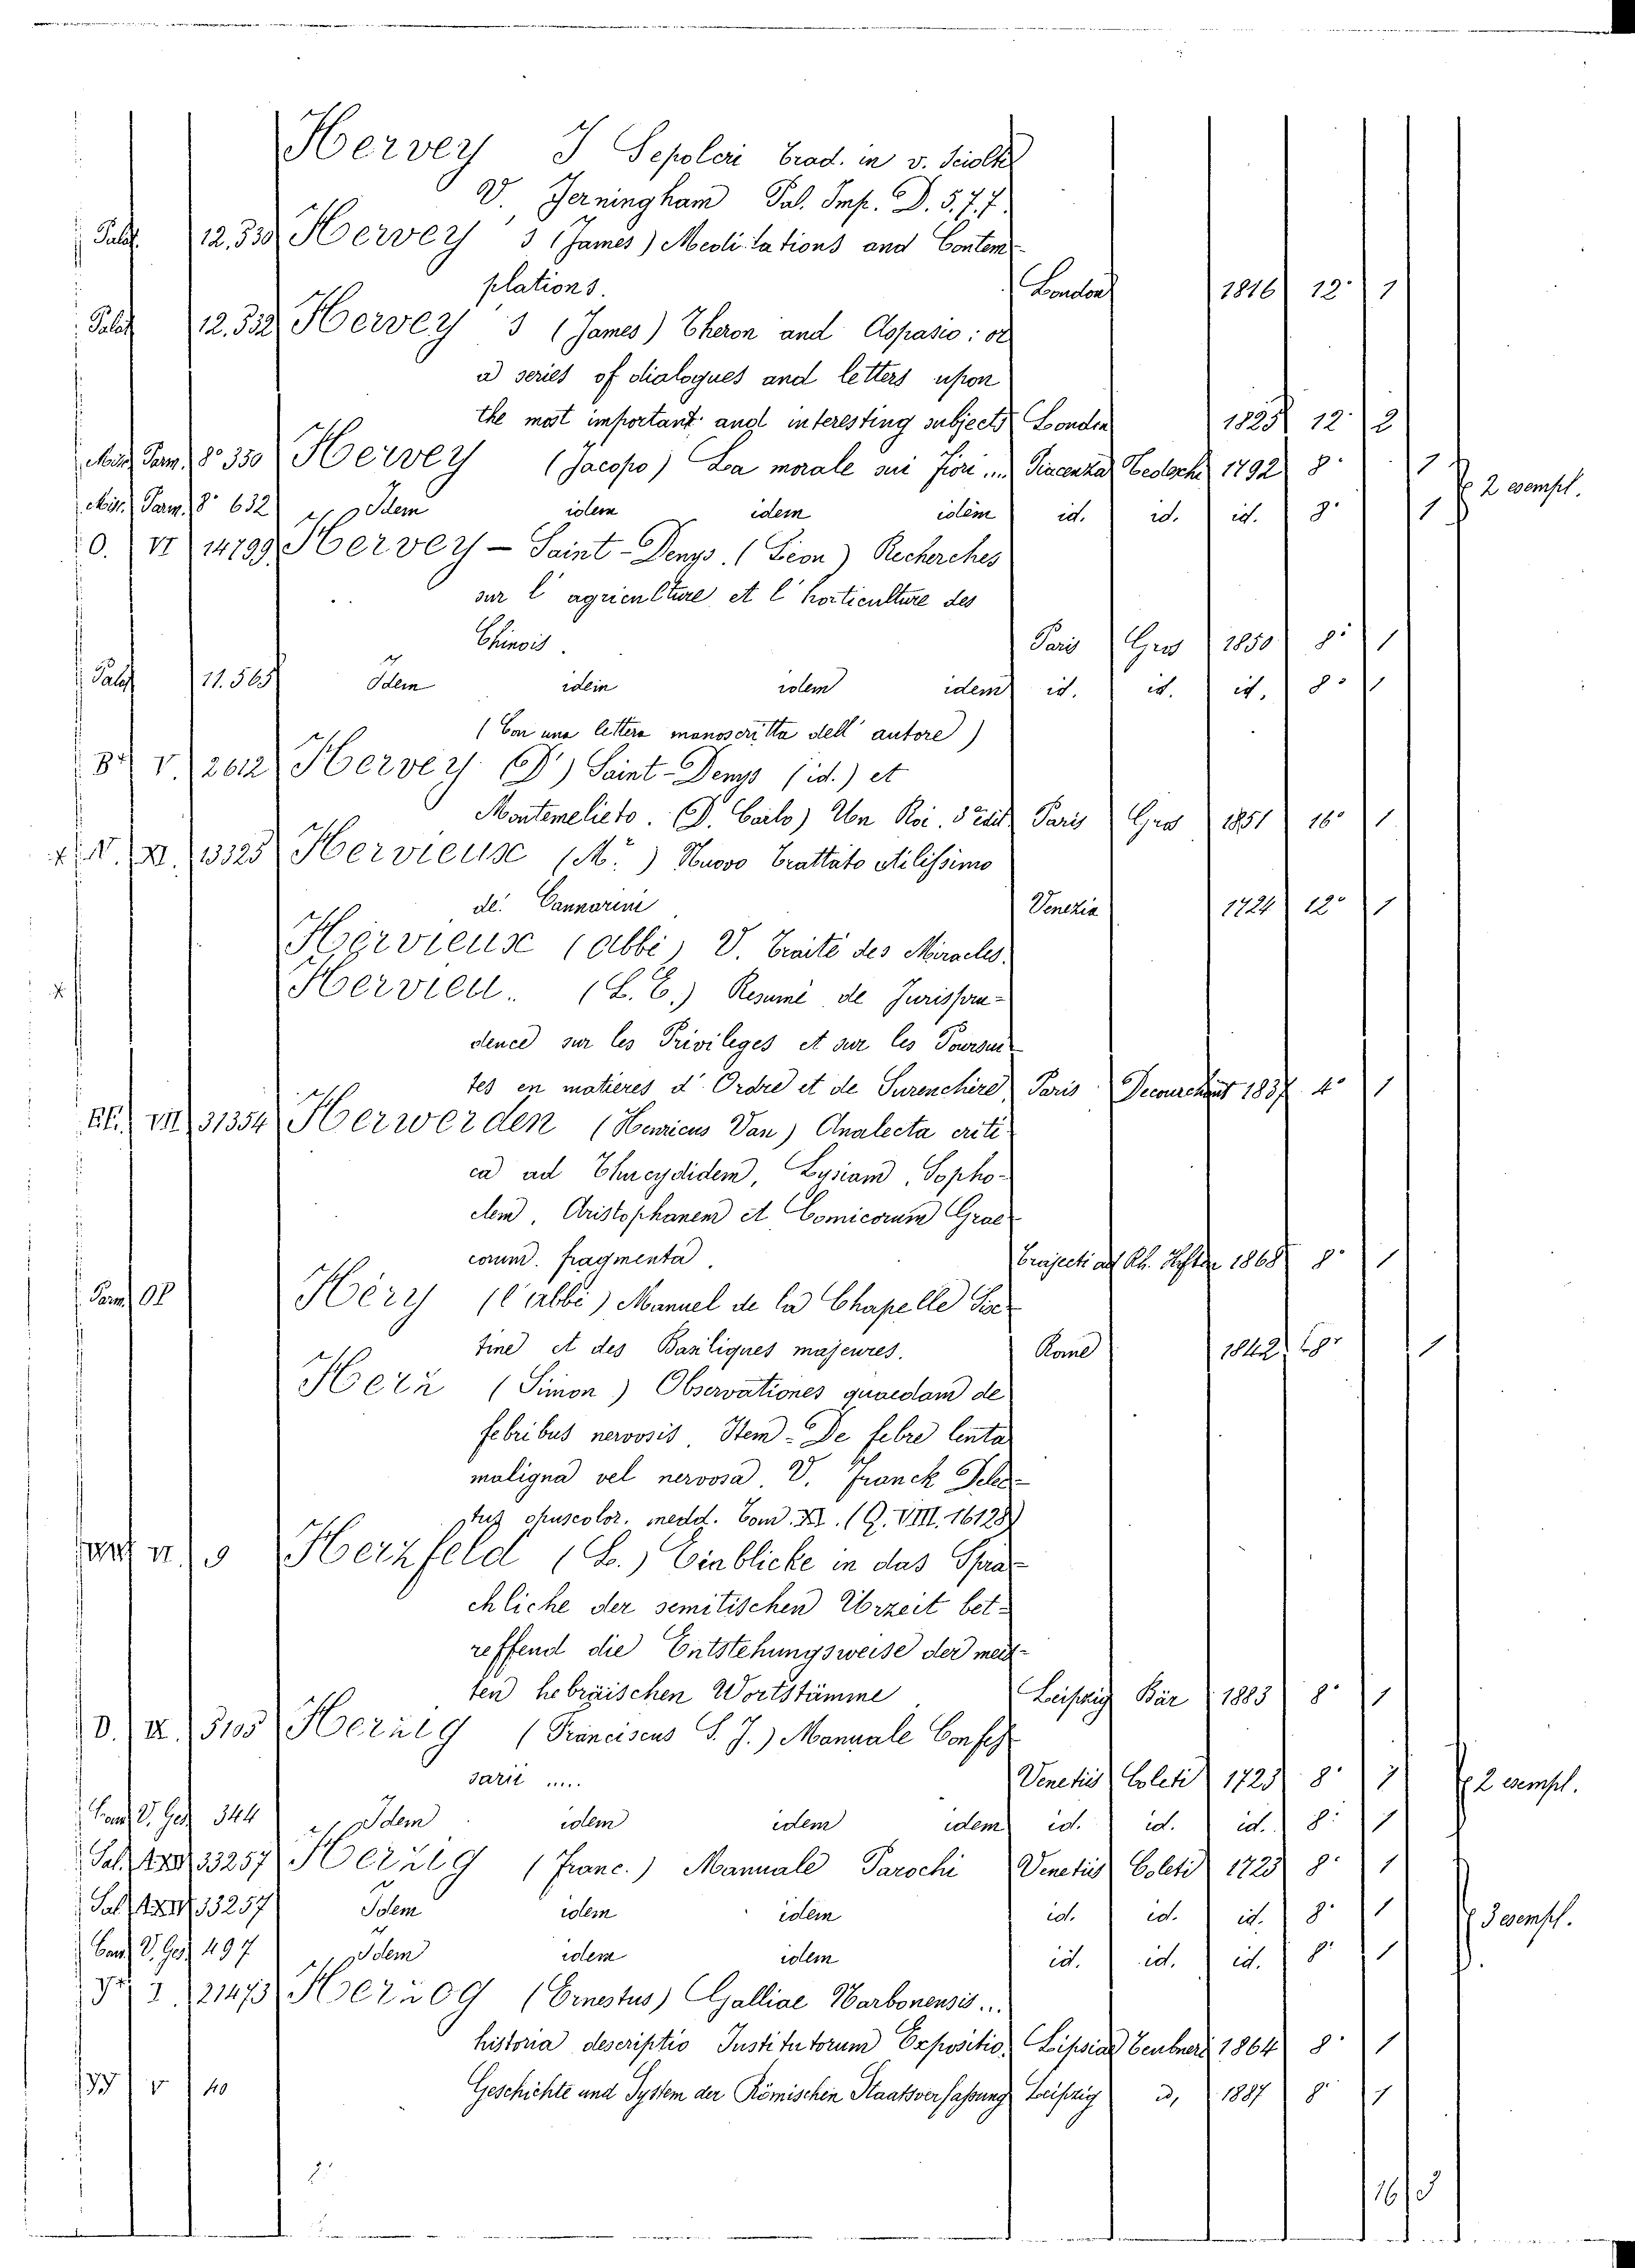 Hervey I Sepolcri trad. in v. sciolti
V. Jerningham Pal. Imp. D. 5. 7. 7.
Palat. 12.530 Hervey J (James) Meditations and Contem-
plations. London 1816 12° 1
Palat. 12.532 Hervey J (James) Theron and Aspasio: or
a series of dialogues and letters upon
the most important and interesting subjects London 1825 12° 2
Misc. Parm. 8° 350 Hervey (Jacopo) La morale sui Fiori ... Piacenza Tedeschi 1792 8° 1 2 esempl.
Misc. Parm. 8° 632 Idem idem idem idem id. id. id. 8° 1
O. VI 14799 Hervey - Saint-Denys. (Léon) Recherches
sur l'agriculture et l'horticulture des
Chinois. Paris Gros 1850 8° 1
Palat. 11.565 Idem idem idem idem id. id. id. 8° 1
(Con una lettera manoscritta dell' autore)
V. 2612 Hervey (D') Saint-Denys (id.) et
Montemelieto. (D. Carlo) Un Roi. 3e édit Paris Gros 1851 16° 1
V. XI. 13325 Hervieux (Mr.) Nuovo Trattato utilissimo
de' Cannarini Venezia 1724 12° 1
Hervieux (Abbé) V. Traité des Miracles.
Hervieu.. (L. C.) Resumé de Jurispru-
dence sur les Privileges et sur les Poursui-
tes en matieres d'Ordre et de Surenchère Paris Decourchant 1837 4° 1
VII 31354 Herwerden (Henricus Van) Analecta criti-
ca ad Thucydidem, Lysiam, Sopho-
clem, Aristophanem et Comicorum Grae-
corum. fragmenta. Trajecti ad Rh. 1868 8° 1
Parm. Héry (l'abbé) Manuel de la Chapelle Six-
tine et des Basiliques majeures. Rome 1842 1
Herz (Simon) Observationes quaedam de
febribus nervosis. Item - De febre lenta
maligna vel nervosa. V. Franck Delec-
tus opuscolor. medd. Tom. XI. (Q. VIII. 16128)
9 Herzfeld (L.) Einblicke in das Spra-
chliche der semitischen Urzeit bet-
reffend die Entstehungsweise der meis-
ten hebräischen Wortstämme Leipzig Bär 1883 8° 1
D. IX. 5105 Herzig (Franciscus S. J.) Manuale Confes-
sarii ..... Venetiis Coleti 1723 8° 1 2 esempl.
V. Ges. 344 Idem idem idem idem id. id. id. 8° 1
Sal. 33257 Herzig (Franc.) Manuale Parochi Venetiis Coleti 1723 8° 1
Sal. 33257 Idem idem idem id. id. id. 8° 1 3 esempl.
V. Ges. 497 Idem idem idem id. id. id. 8° 1
I. 21473 Herzog (Ernestus) Galliae Narbonensis...
historia descriptio Institutorum Expositio. Lipsiae Teubneri 1864 8° 1
V 40 Geschichte und System der Römischen Staatsverfassung Leipzig id, 1887 8° 1
16 3